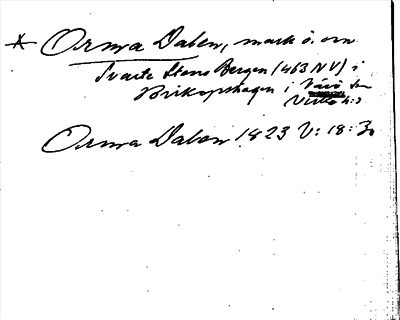 Orma Dalen, mark ö. om
Svarte Stens Bergen (463 NV) i
Biskopshagen i Värö sn
Viske h:d
Orma Dalen 1823 V: 18: 30